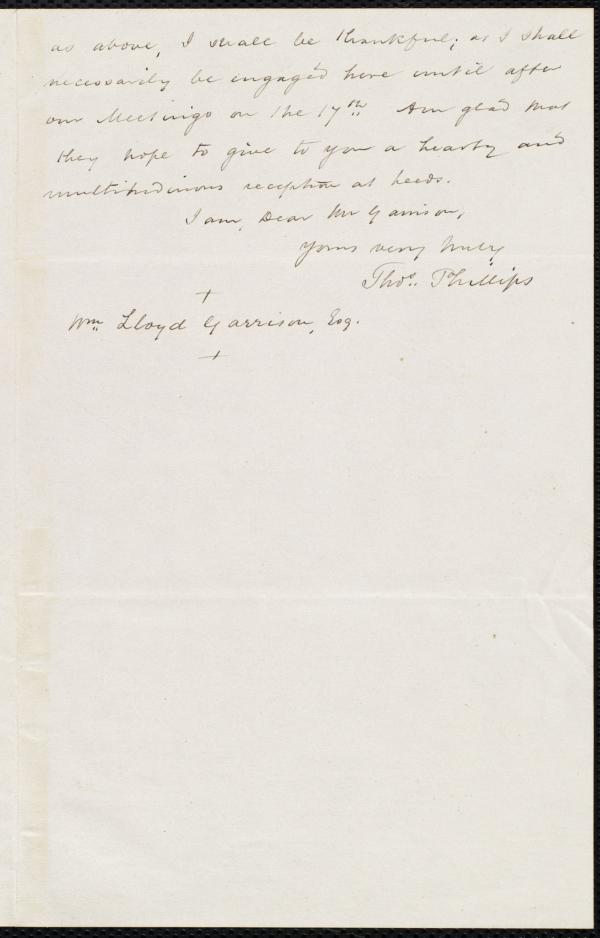 as above, I shall be thankful; as I shall
necessarily be engaged here until after
our Meetings on the 17th. Am glad that
they hope to give to you a hearty and
multitudinous reception at Leeds.
I am, Dear Mr Garrison,
yours very truly
Thos. Phillips
+
Wm. Lloyd Garrison, Esq.
+